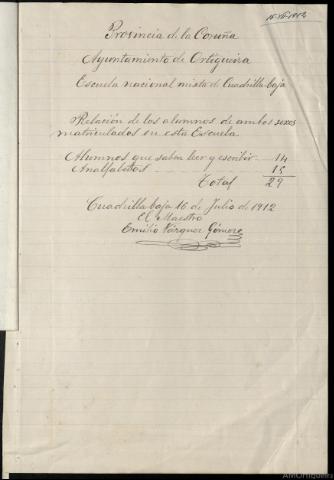 Provincia de la Coruña
Ayuntamiento de Ortigueira
Escuela nacional mixta de Cuadrilla-baja
Relación de los alumnos de ambos sexos
matriculados en esta Escuela
Alumnos que saben leer y escribir 14
Analfabetos 15
Total 29
Cuadrilla-baja 16 de Julio de 1912
El Maestro
Emilio Vázquez Gómez
AMOrtigueira